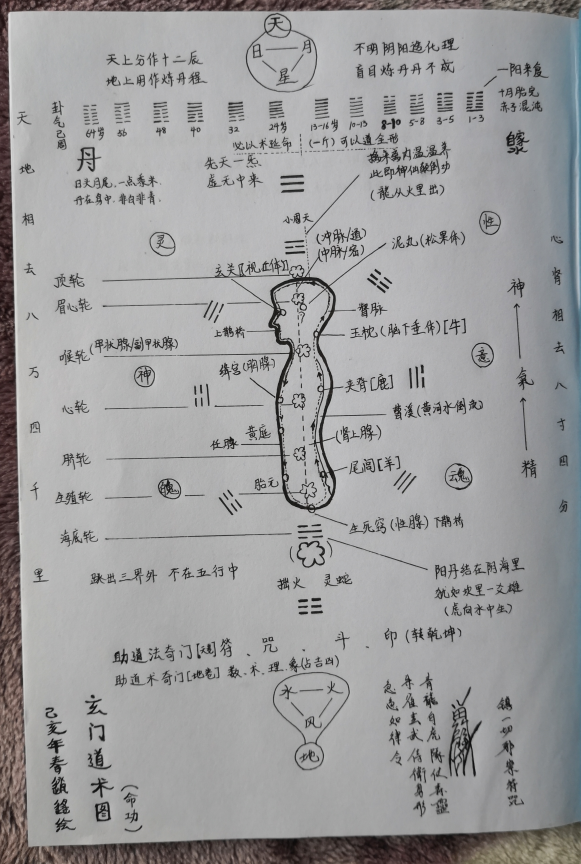 天
日 月
星
天上分作十二辰
地上用作炼丹程
不明阴阳造化理
盲目炼丹丹不成
一阳来复
十月胎兒
赤子混沌
卦
气
64岁 56 48 40 32 24岁 13-16岁 10-13 8-10 5-8 3-5 1-3
以术延命
(一斤)可以道全形
丹
日头月尾,一点
丹在身中,非白非青.
先天一炁
虚无中来
此即神仙颠倒功
(龍从火里出)
小周天
天地相去八万四千里
心肾相去八寸四分
灵
性
(冲脉/道)
(中脉/宫)
玄关[视丘体]
泥丸(松果体)
顶轮
眉心轮
督脉
上鹊桥
玉枕(脑下垂体)[牛]
喉轮(甲状腺/副甲状腺)
神
意
绛宫(胸腺)
夹脊[鹿]
心轮
曹溪(黄河水倒流)
黄庭
任脉
(肾上腺)
脐轮
尾闾[羊]
生殖轮
魄
胎元
魂
生死窍(性腺)下鹊桥
海底轮
神
氣
精
跳出三界外 不在五行中
拙火 灵蛇
阳丹结在阴海里
犹如坎里一爻雄
(虎向水中生)
助道法奇门[天] 符、咒、斗、印(转乾坤)
助道术奇门[地] 数、术、理、象(占吉凶)
水 火
风
地
玄门道术图
(命功)
己亥年春
绘
青龍白虎隊仗
朱雀玄武侍衛身形
急急如律令